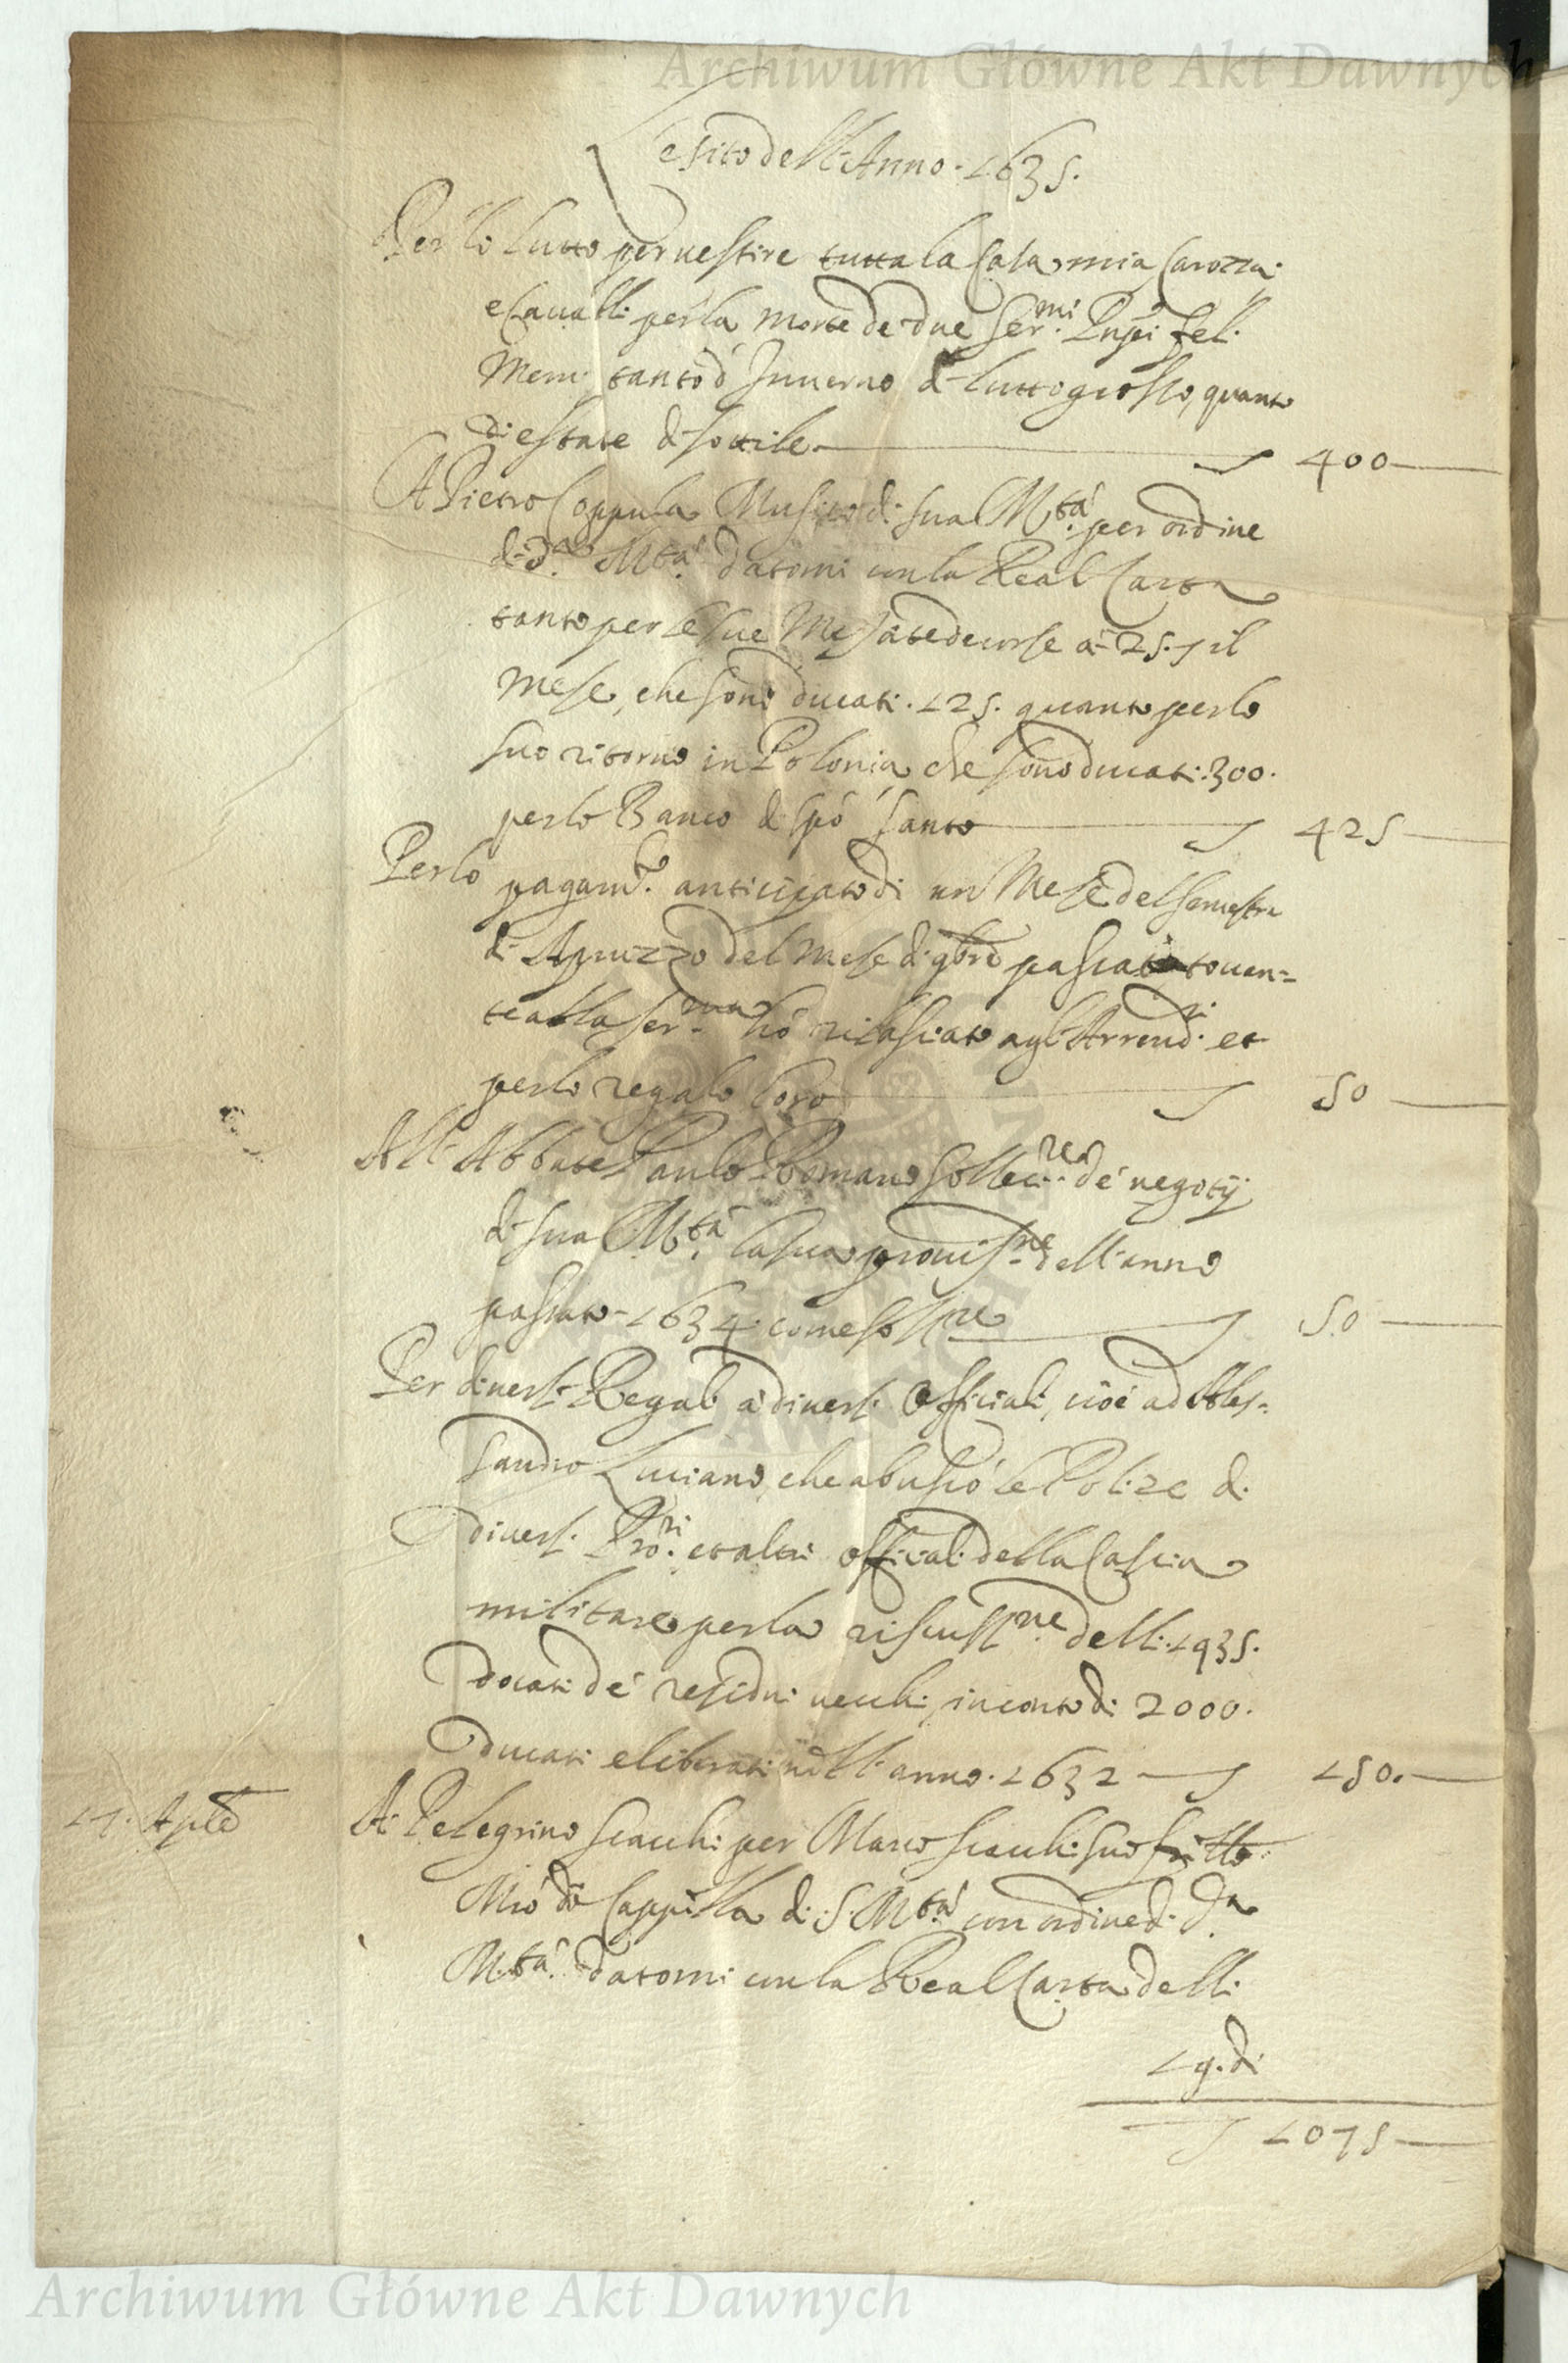 Archiwum Główne Akt Dawnych
esito dell'Anno. 1635.
Per lo lutto per uestire tutta la Casa mia Carozza
e Caualli per la morte de due Ser.mi Pnpi fel:
Mem: tanto d'Inuerno di lutto grosso, quanto
di estate di sottile 400
A Pietro Coppula Musico di sua M.tà per ordine
di d.a M.tà datomi con la Real Carta
tanto per le sue Mesate decorse à 25. il
Mese, che sono ducati. 125. quanto per lo
suo ritorno in Polonia che sono ducati. 300.
per lo Banco di Spò Santo 425
Per lo pagam.to anticipato di un Mese del semestre
di Apruzzo del mese di 9bre passato touen=
te alla Ser.ma hò rilasciato agl'Arrend.ri et
per lo regalo loro 50
All'Abbate Paulo Romano Sollec.re de negotij
di sua M.tà la sua prouis.ne dell'anno
passato 1634 come so 50
Per diuersi Regali à diuersi Officiali, cioè ad Ales=
sandro Luciano, che abuscò le Polize di
diuersi et altri officiali della Cascia
militare per la riscuss.ne delli. 1935.
docati de residui uecchi, in conto di 2000.
ducati eliberati nell'anno. 1632 150.
17. Aple A Pelegrino Scacchi per Marco Scacchi suo frllo
Mrò di Cappella di S. M.tà con ordine di d.a
M.tà datomi con la Real Carta delli
19. di
1075
Archiwum Główne Akt Dawnych